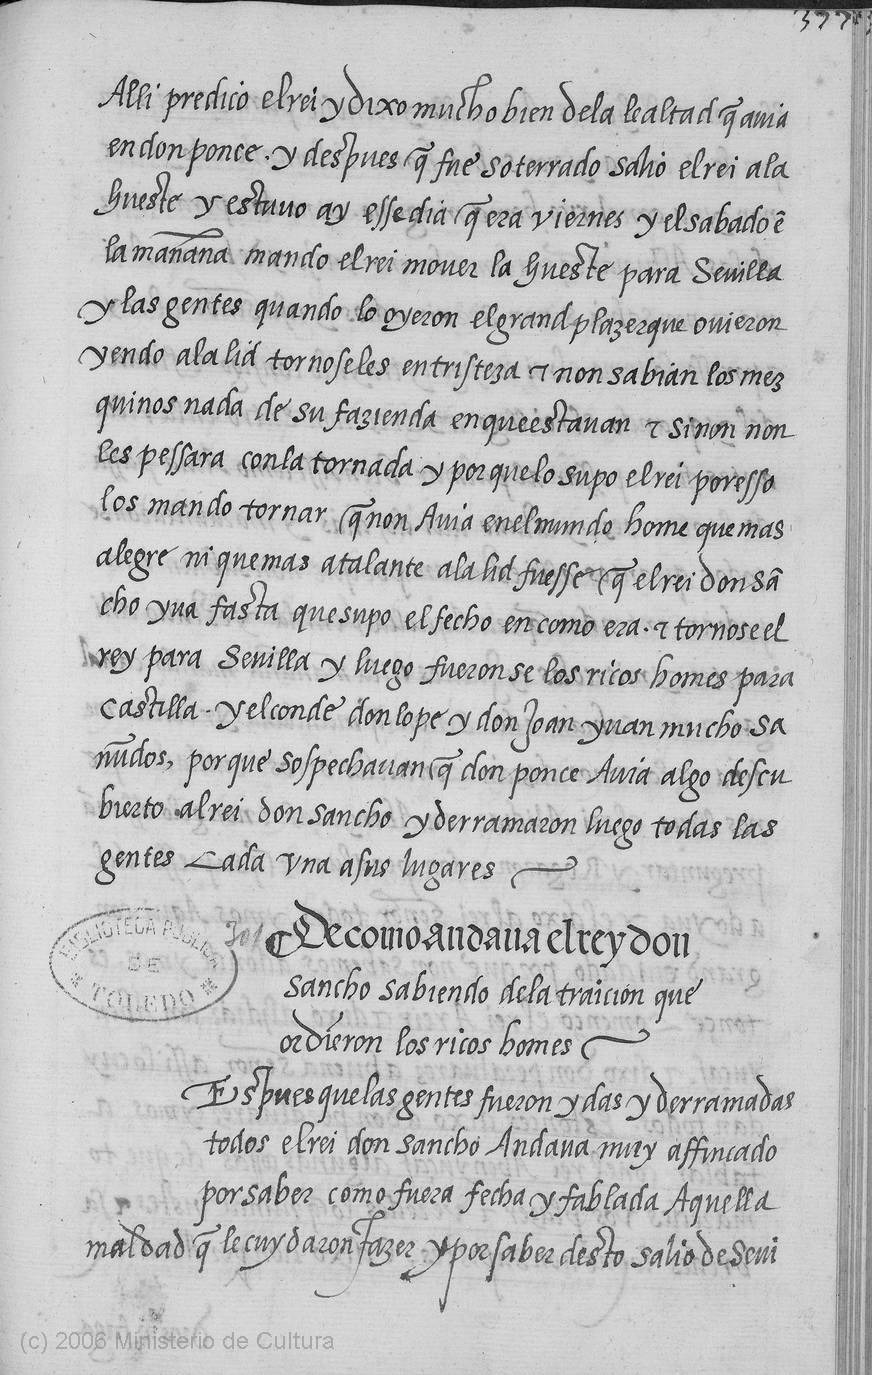 377
Alli predico el rei y dixo mucho bien de la lealtad q̃ auia
en don ponce . y despues q̃ fue soterrado salio el rei a la
hueste y estuuo ay esse dia q̃ era viernes y el sabado ẽ
la mañana mando el rei mouer la hueste para Seuilla
y las gentes quando lo oyeron el grand plazer que ouieron
yendo a la lid tornoseles en tristeza ⁊ non sabian los mez
quinos nada de su fazienda en que estauan ⁊ si non non
les pessara con la tornada y porque lo supo el rei por esso
los mando tornar q̃ non Auia en el mundo home que mas
alegre ni que mas atalante a la lid fuesse q̃ el rei don Sã
cho yua fasta que supo el fecho en como era . ⁊ tornose el
rey para Seuilla y luego fueronse los ricos homes para
Castilla . y el conde don lope y don Joan yuan mucho sa
ñudos, porque sospechauan q̃ don ponce Auia algo descu
bierto al rei don sancho y derramaron luego todas las
gentes Cada vna a sus lugares
De como andaua el rey don
sancho sabiendo de la traicion que
ordieron los ricos homes
BIBLIOTECA PUBLICA
DE
TOLEDO
Espues que las gentes fueron ydas y derramadas
todos el rei don sancho Andaua muy affincado
por saber como fuera fecha y fablada Aquella
maldad q̃ le cuydaron fazer y por saber desto salio de Seui
(c) 2006 Ministerio de Cultura